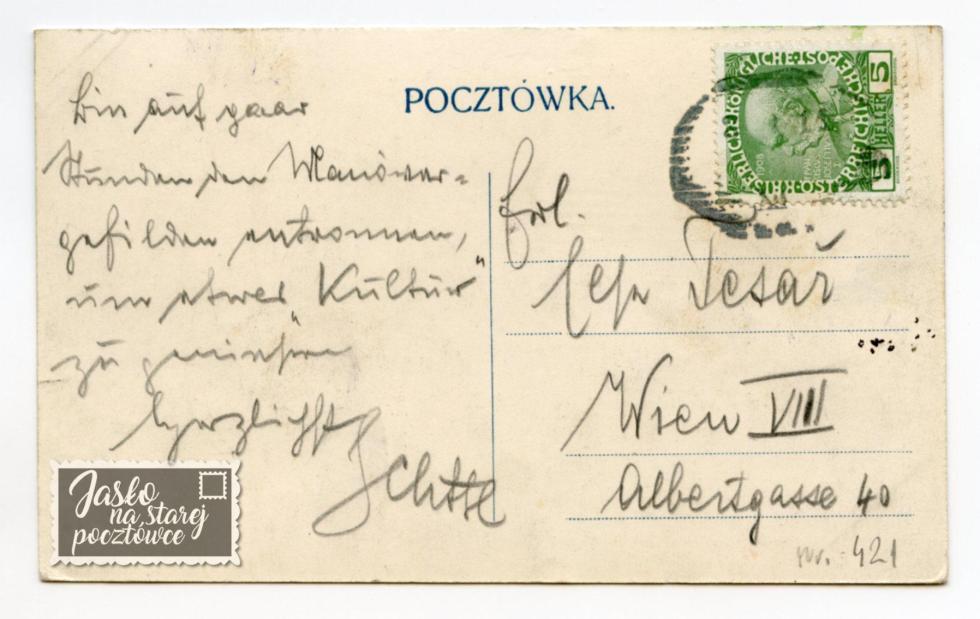 POCZTÓWKA.
bin auf paar
Stunden den Manöver=
gefilden entronnen,
um etwas "Kultur"
zu genießen
herzlichst
Frl.
Tesař
Wien VIII
Albertgasse 40
nr. 421
5 HELLER 5
1908
Jasko
na starej
pocztówce